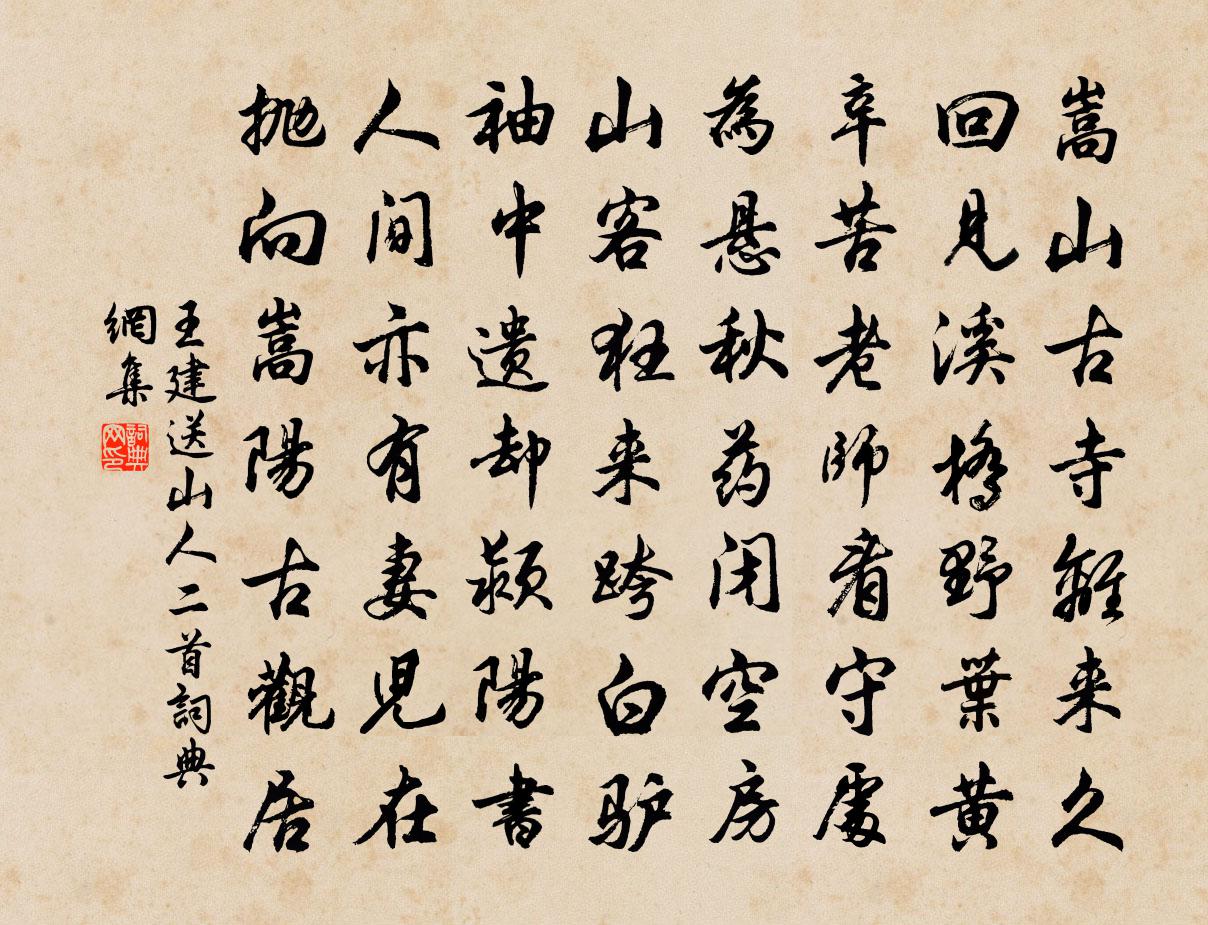 嵩山古寺離来久
回見溪橋野葉黃
辛苦老師看守處
為懸秋药闭空房
山客狂来跨白驴
袖中遗却颍陽書
人间亦有妻児在
抛向嵩陽古觀居
王建送山人二首詞典
網集
詞典
网印